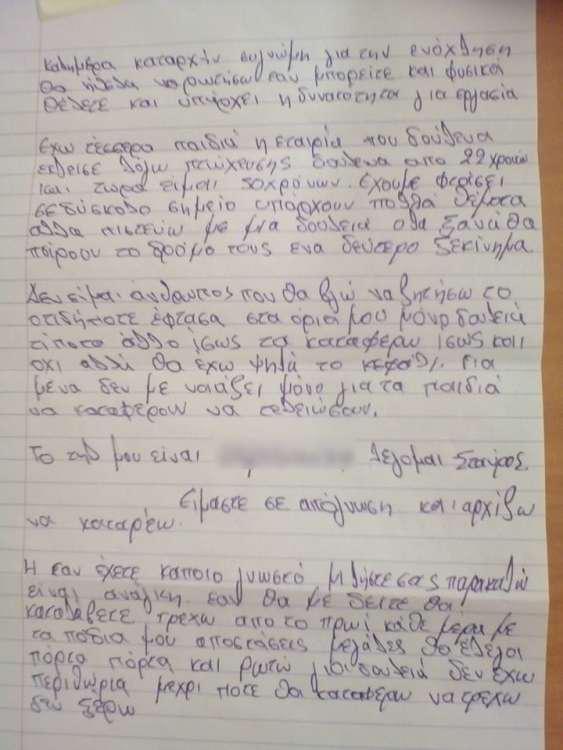 καλημερα καταρχήν συγνώμη για την ενόχληση
θα ήθελα να ρωτήσω εαν μπορείτε και φυσικά
θέλετε και υπάρχει η δυνατότητα για εργασία
Εχω τέσσερα παιδιά η εταιρία που δούλευα
έκλεισε λόγω πτώχευσης δούλευα απο 22 χρονών
και τώρα είμαι 50 χρόνων. έχουμε φτάσει
σε δύσκολο σημείο υπάρχουν πολλά θέματα
αλλα πιστεύω με μια δουλειά ολα ξανά θα
πάρουν το δρόμο τους ενα δεύτερο ξεκίνημα.
Δεν είμαι άνθρωπος που θα βγώ να ζητήσω το
οτιδήποτε έφτασα στα όρια μου μόνο δουλειά
τίποτα άλλο ίσως τα καταφέρω ίσως και
όχι αλλά θα έχω ψηλά το κεφάλι. Για
μένα δεν με νοιάζει μόνο για τα παιδιά
να καταφέρουν να τελειώσουν.
Το τηλ μου είναι Λέγομαι Σταύρος.
Είμαστε σε απόγνωση και αρχίζω
να καταρέω.
Η εαν έχετε κάποιο γνωστό μιλήστε σας παρακαλώ
είναι ανάγκη. εαν θα με δείτε θα
καταλάβετε τρέχω απο το πρωί κάθε μερα με
τα πόδια μου αποστάσεις μεγάλες
πόρτα πόρτα και ρωτώ για δουλειά δεν έχω
περιθώρια μέχρι πότε θα καταφέρω να τρέχω
δεν ξέρω